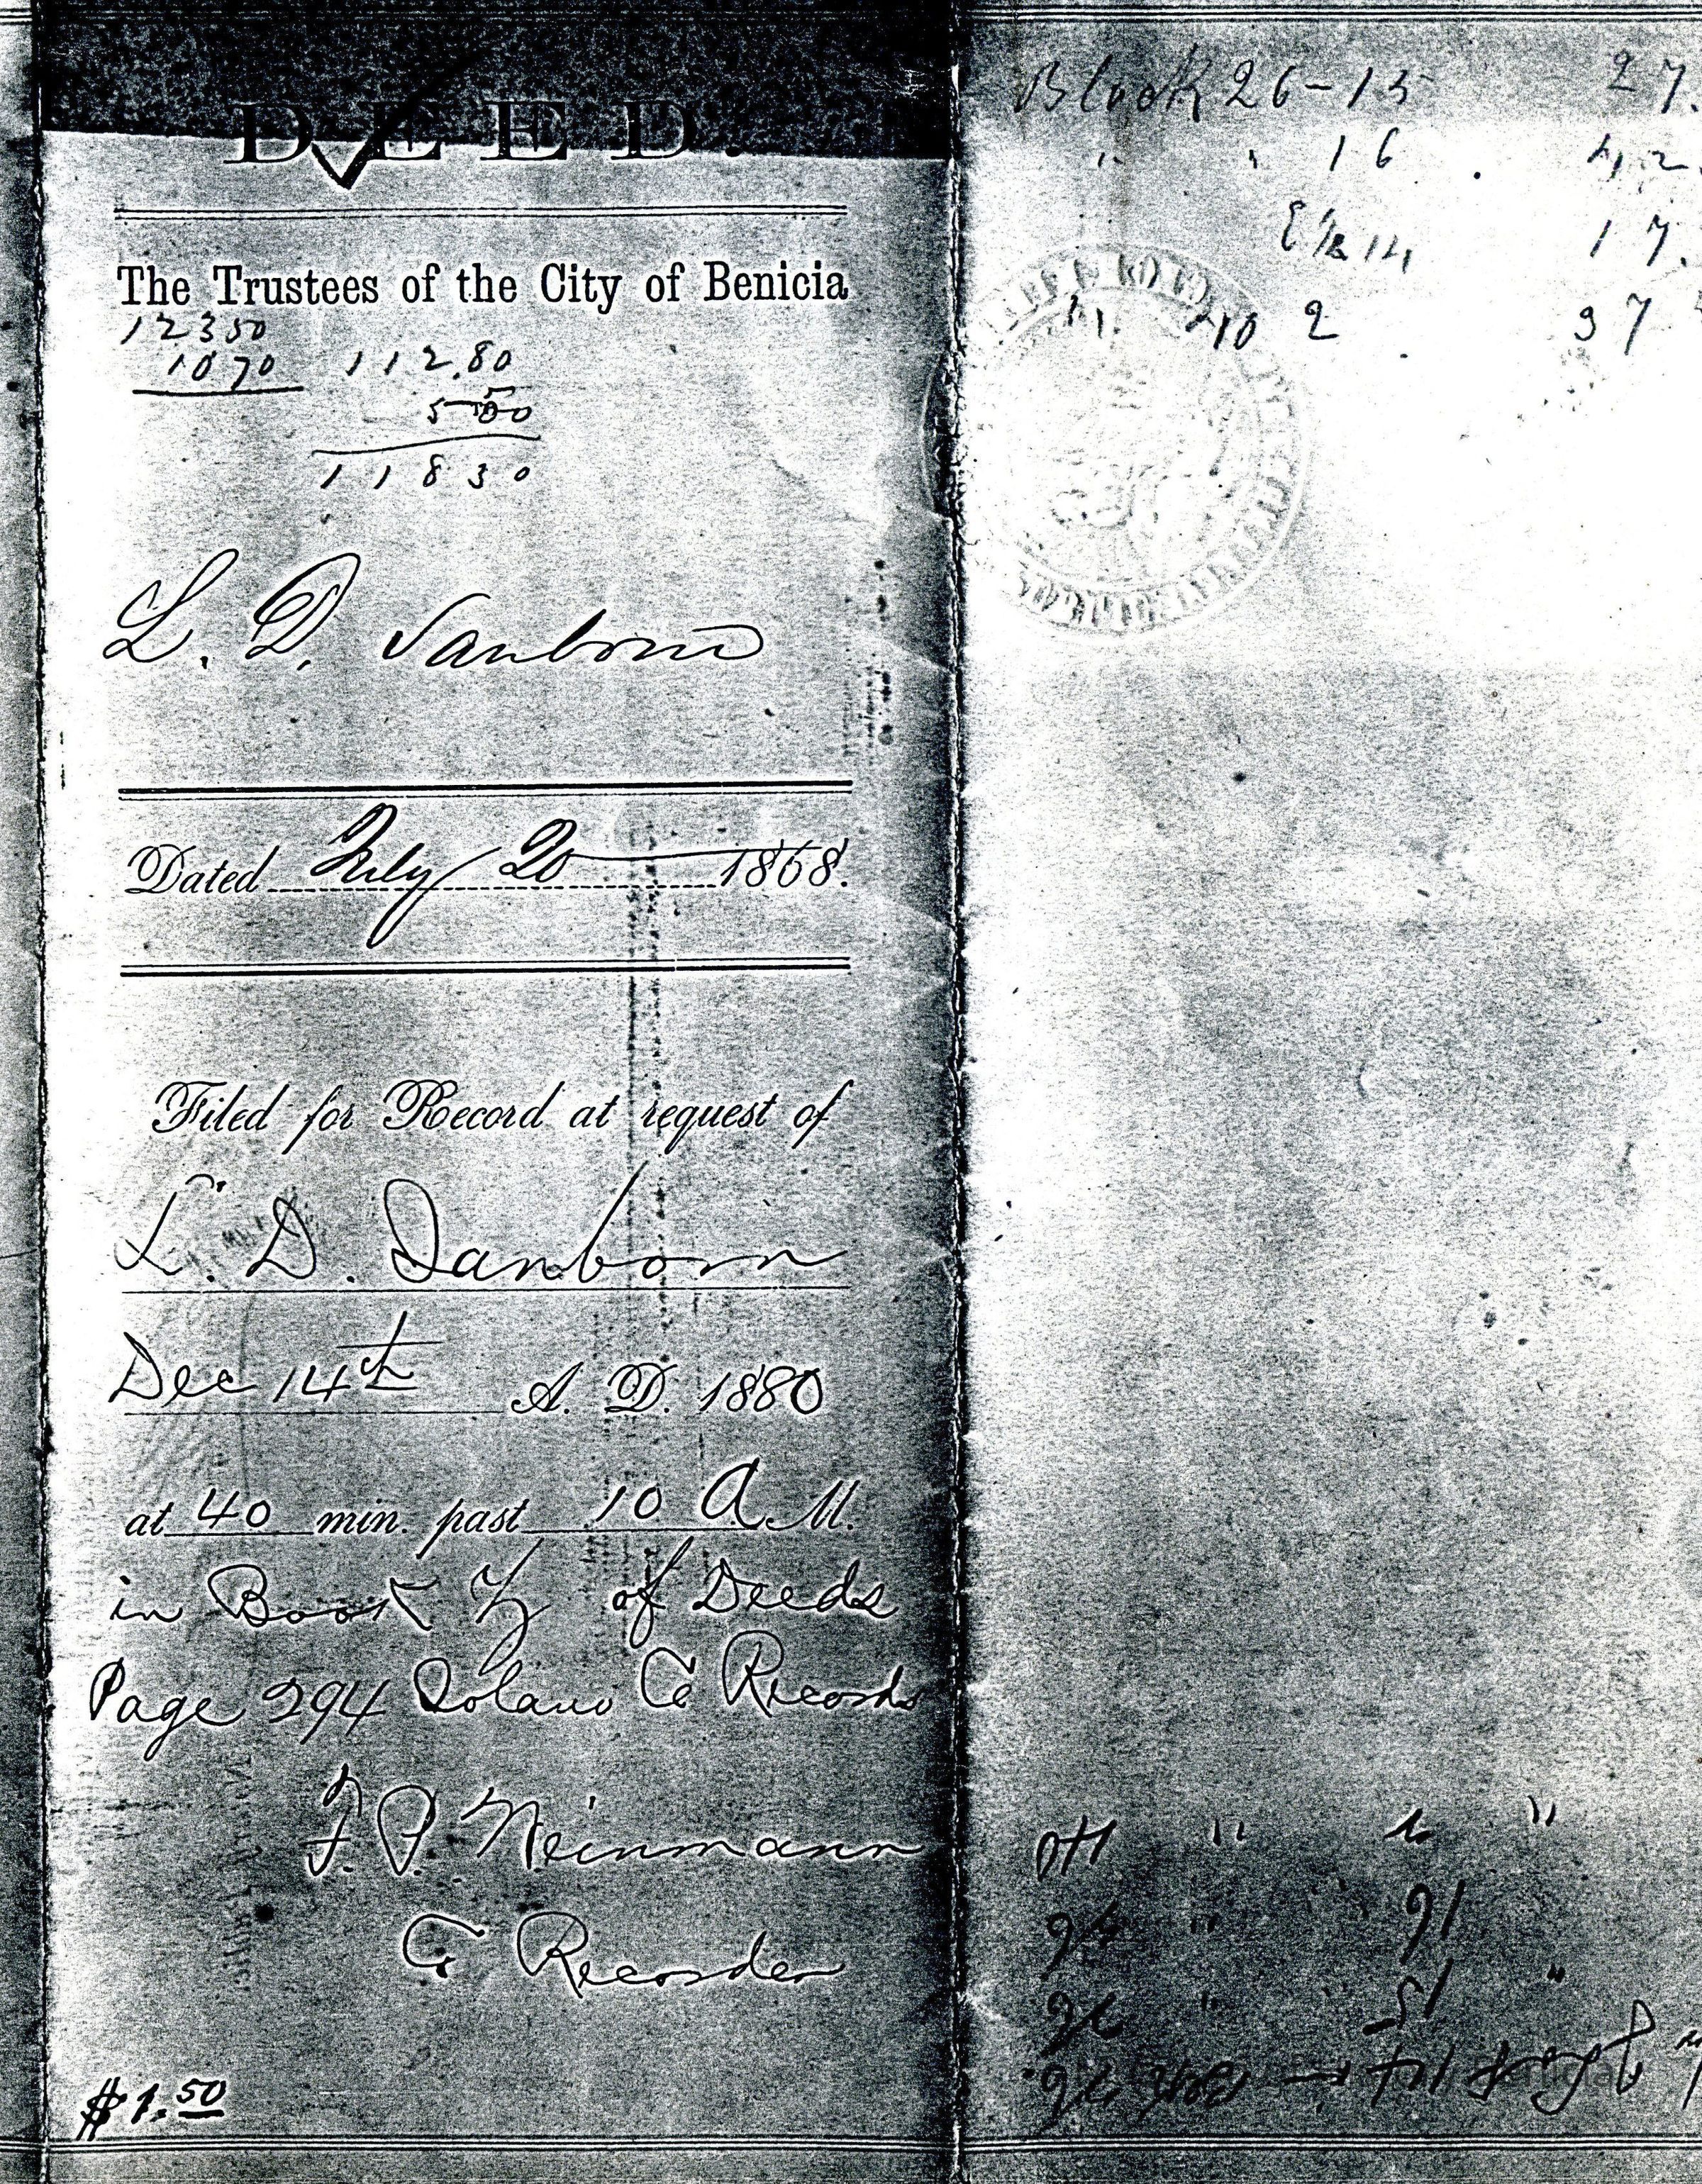 DEED.
The Trustees of the City of Benicia
12350
1070 112.80
11830
L. D. Sanborn
Dated July 20 1868.
Filed for Record at request of
L. D. Sanborn
Dec 14th A. D. 1880
at 40 min. past 10 A M.
in Book of Deeds
Page 294 Solano Co Records
F. P. Weinmann
Co Recorder
$1.50
Block 26-15 27.
" " 16 42.
E ½ 14 17.
2 37
140 " "
26 " " 16
26 " " 15 "
26